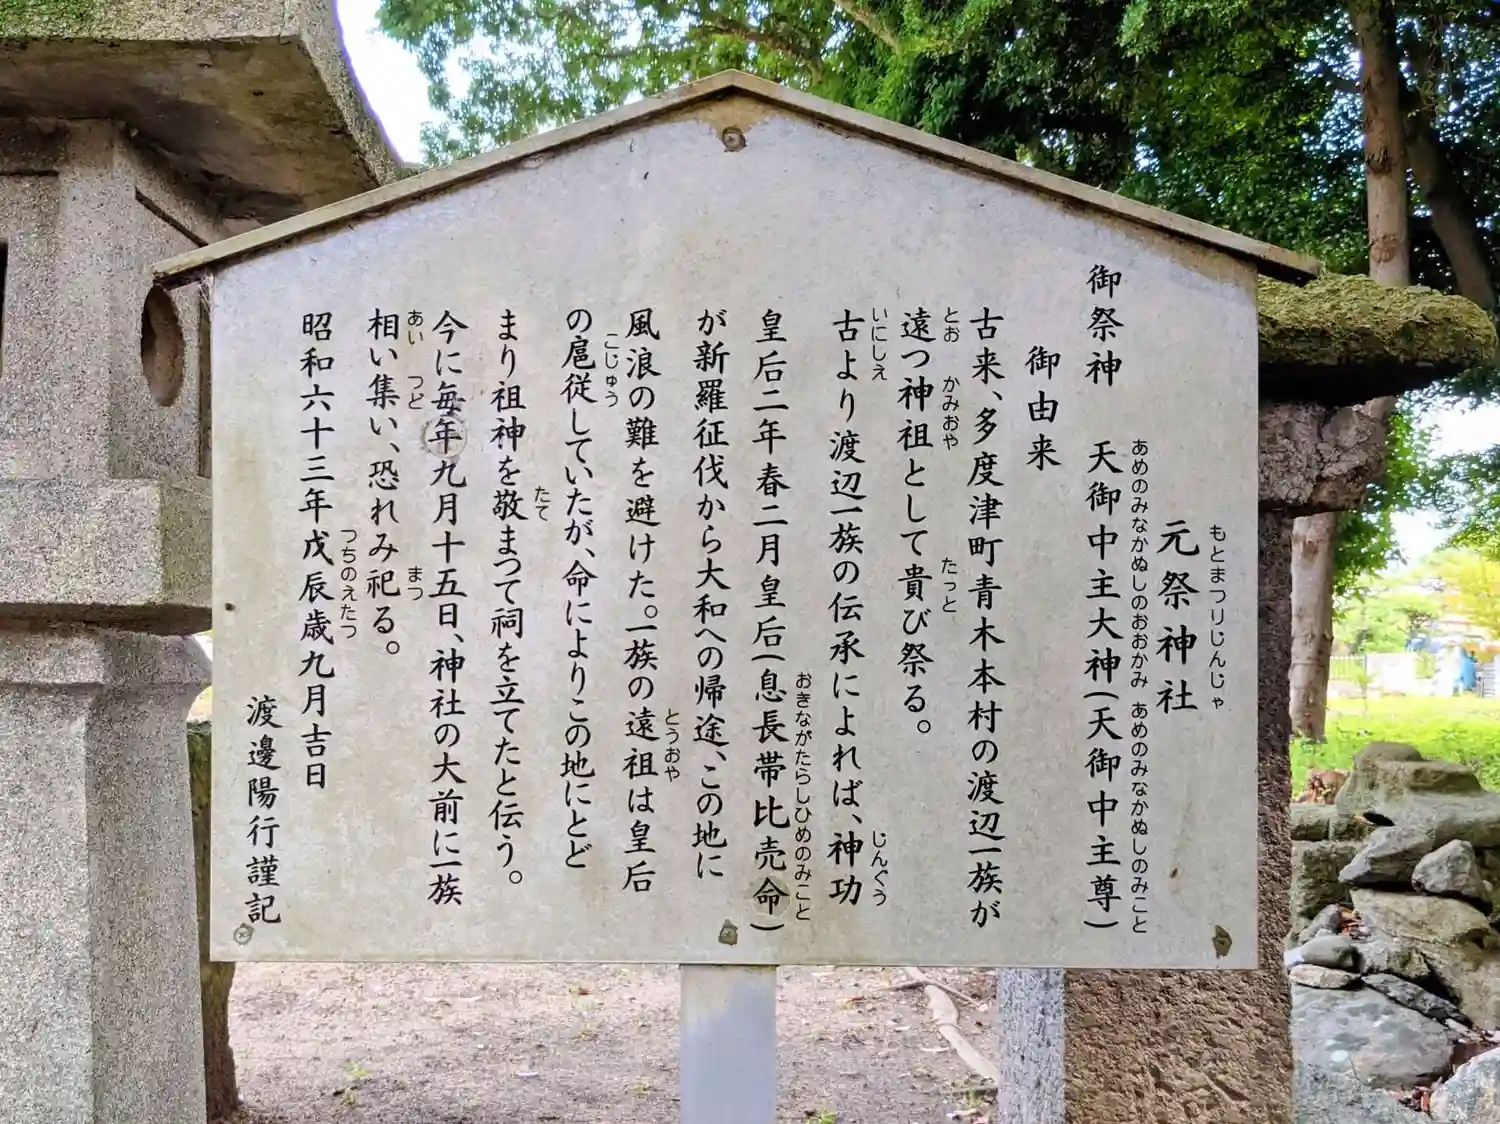 もとまつりじんじゃ
元祭神社
あめのみなかぬしのおおかみ あめのみなかぬしのみこと
御祭神 天御中主大神(天御中主尊)
御由来
古来、多度津町青木本村の渡辺一族が
とお かみおや たっと
遠つ神祖として貴び祭る。
いにしえ じんぐう
古より渡辺一族の伝承によれば、神功
おきながたらしひめのみこと
皇后二年春二月皇后(息長帯比売命)
が新羅征伐から大和への帰途、この地に
とうおや
風浪の難を避けた。一族の遠祖は皇后
こじゅう
の扈従していたが、命によりこの地にとど
たて
まり祖神を敬まつて祠を立てたと伝う。
今に毎年九月十五日、神社の大前に一族
あい つど まつ
相い集い、恐れみ祀る。
つちのえたつ
昭和六十三年戊辰歳九月吉日
渡邊陽行謹記